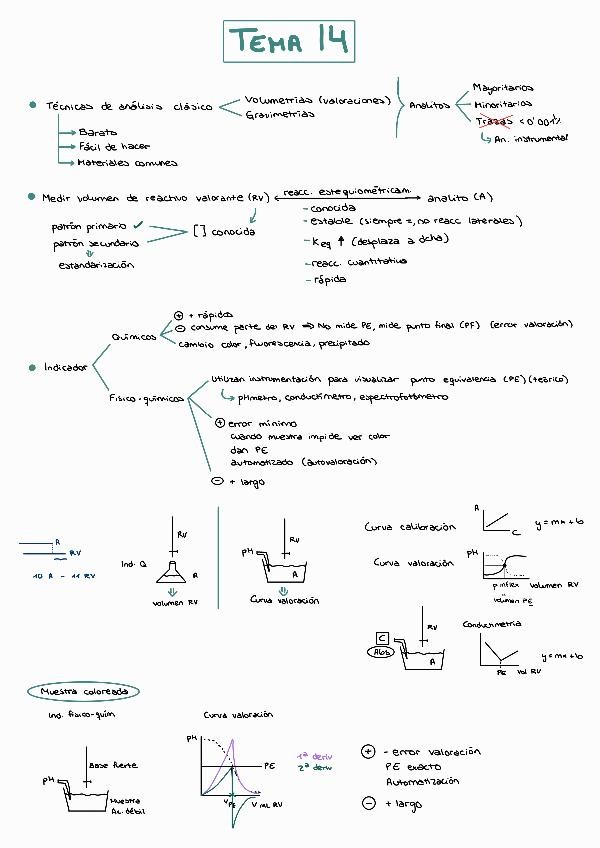 TEMA 14
Técnicas de análisis clásico
Volumetrías (valoraciones)
Gravimetrías
Analitos
Mayoritarios
Minoritarios
Trazas < 0'001%
An. instrumental
Barato
Fácil de hacer
Materiales comunes
Medir volumen de reactivo valorante (RV) reacc. estequiométricam. analito (A)
- conocida
- estable (siempre =, no reacc laterales)
- Keq ↑ (desplaza a dcha)
- reacc. cuantitativa
- rápida
patrón primario ✓
patrón secundario
[ ] conocida
estandarización
Indicador
Químicos
⊕ + rápidos
⊖ consume parte del RV ⇒ No mide PE, mide punto final (PF) (error valoración)
cambio color, fluorescencia, precipitado
Físico-químicos
Utilizan instrumentación para visualizar punto equivalencia (PE) (teórico)
pHmetro, conductímetro, espectrofotómetro
⊕ error mínimo
cuando muestra impide ver color
dan PE
automatizado (autovaloración)
⊖ + largo
A
RV
10 A - 11 RV
Ind. Q
RV
A
volumen RV
pH
RV
A
Curva valoración
Curva calibración
A
C
y = mx + b
Curva valoración
pH
p. inflex volumen RV
volumen PE
C
Abs
RV
A
Conductimetría
PE Vol RV
y = mx + b
Muestra coloreada
Ind. físico-quím
pH
Base fuerte
Muestra
Ac. débil
Curva valoración
pH
PE
VPE
V mL RV
1ª deriv
2ª deriv
⊕ - error valoración
PE exacto
Automatización
⊖ + largo